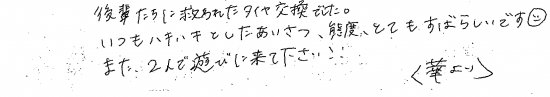 後輩たちに救われたタイヤ交換でした。
いつもハキハキとしたあいさつ、態度、とてもすばらしいです
また、2人で遊びに来て下さい!!
〈華より〉